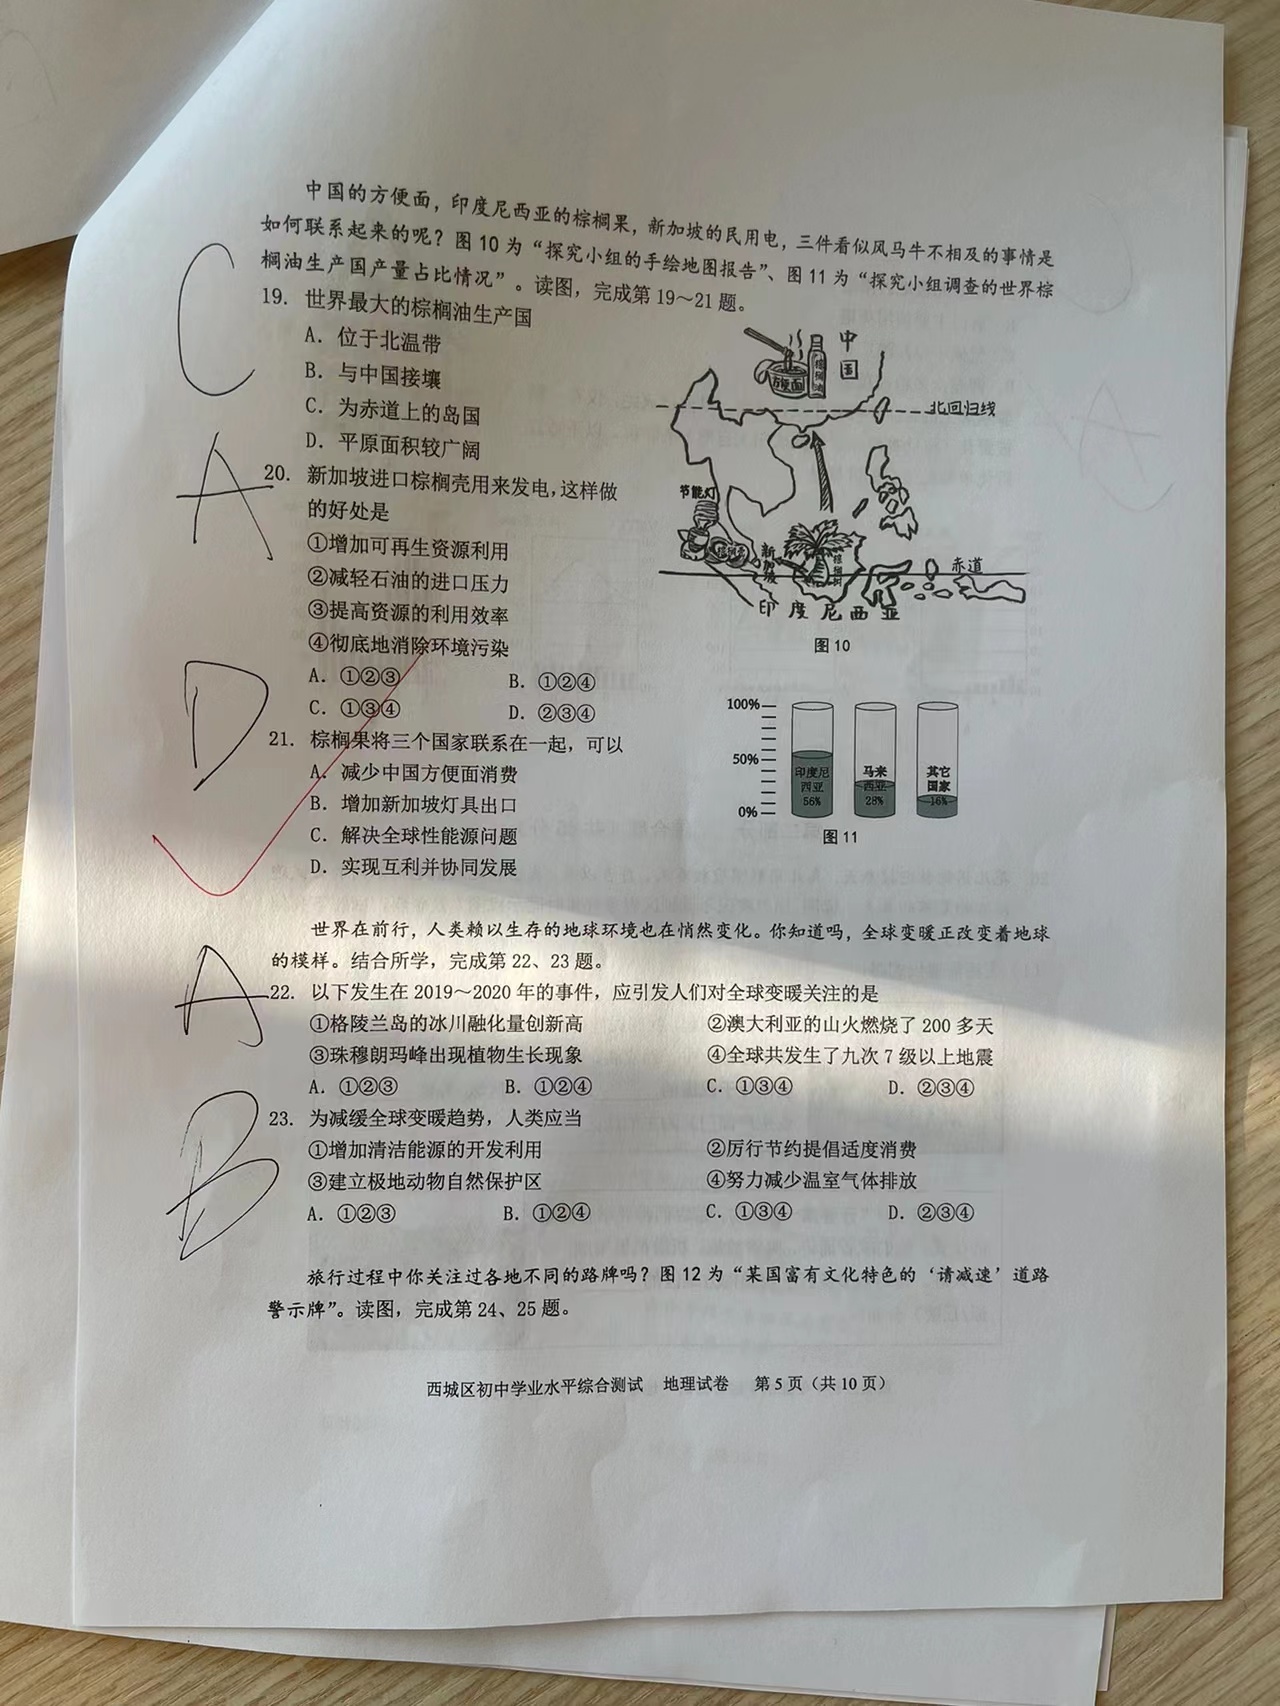 中国的方便面，印度尼西亚的棕榈果，新加坡的民用电，三件看似风马牛不相及的事情是
如何联系起来的呢？图10为“探究小组的手绘地图报告”、图11为“探究小组调查的世界棕
榈油生产国产量占比情况”。读图，完成第19～21题。
C
19. 世界最大的棕榈油生产国
A. 位于北温带
B. 与中国接壤
C. 为赤道上的岛国
D. 平原面积较广阔
A
20. 新加坡进口棕榈壳用来发电，这样做
的好处是
①增加可再生资源利用
②减轻石油的进口压力
③提高资源的利用效率
④彻底地消除环境污染
A. ①②③ B. ①②④
C. ①③④ D. ②③④
D
21. 棕榈果将三个国家联系在一起，可以
A. 减少中国方便面消费
B. 增加新加坡灯具出口
C. 解决全球性能源问题
D. 实现互利并协同发展
中国
方便面
棕榈油
北回归线
节能灯
棕榈壳
新加坡
棕榈树
赤道
印度尼西亚
图10
100%
50%
0%
印度尼西亚 56%
马来西亚 28%
其它国家 16%
图11
世界在前行，人类赖以生存的地球环境也在悄然变化。你知道吗，全球变暖正改变着地球
的模样。结合所学，完成第22、23题。
A
22. 以下发生在2019～2020年的事件，应引发人们对全球变暖关注的是
①格陵兰岛的冰川融化量创新高 ②澳大利亚的山火燃烧了200多天
③珠穆朗玛峰出现植物生长现象 ④全球共发生了九次7级以上地震
A. ①②③ B. ①②④ C. ①③④ D. ②③④
B
23. 为减缓全球变暖趋势，人类应当
①增加清洁能源的开发利用 ②厉行节约提倡适度消费
③建立极地动物自然保护区 ④努力减少温室气体排放
A. ①②③ B. ①②④ C. ①③④ D. ②③④
旅行过程中你关注过各地不同的路牌吗？图12为“某国富有文化特色的‘请减速’道路
警示牌”。读图，完成第24、25题。
西城区初中学业水平综合测试 地理试卷 第5页（共10页）